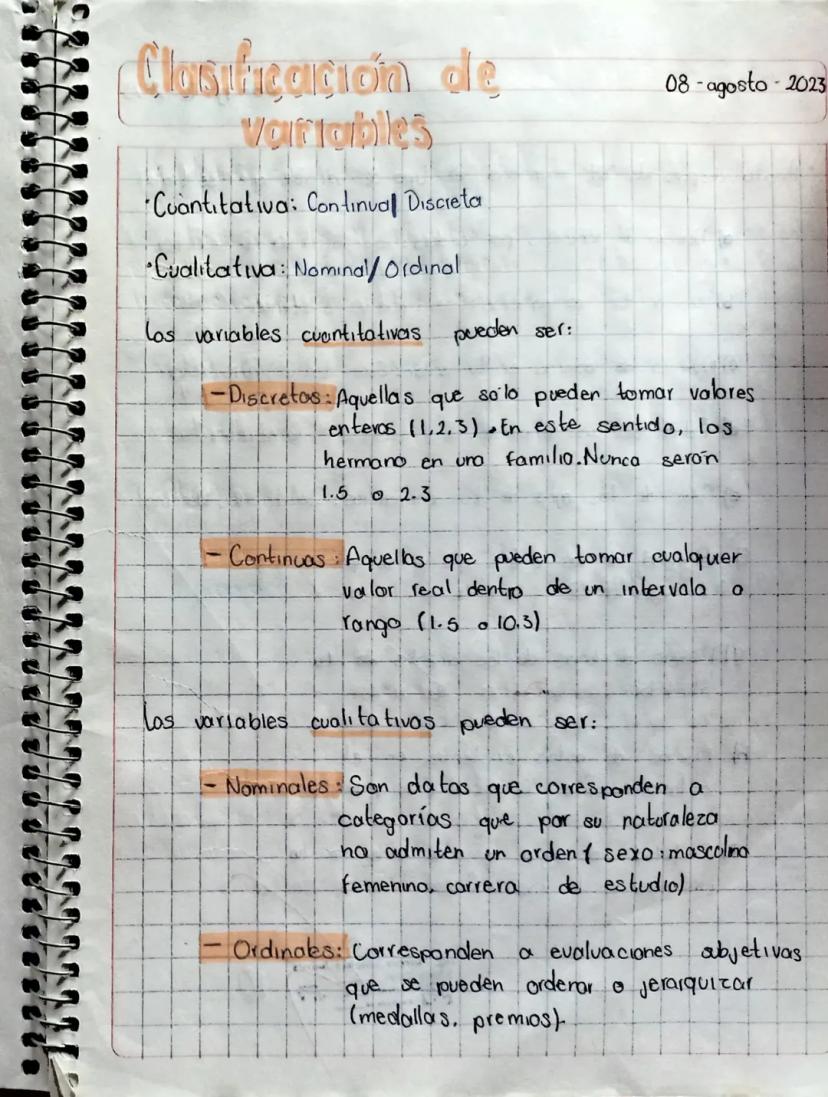 Clasificación de
variables
08 - agosto - 2023
· Cuantitativa: Continua/ Discreta
· Cualitativa: Nominal/ Ordinal
Las variables cuantitativas pueden ser:
- Discretas: Aquellas que sólo pueden tomar valores
enteros (1,2,3). En este sentido, los
hermano en una familia. Nunca serán
1.5 o 2.3
- Continuas: Aquellas que pueden tomar cualquer
valor real dentro de un intervalo o
rango (1.5 o 10.3)
Las variables cualitativas pueden ser:
- Nominales: Son datos que corresponden a
categorías que por su naturaleza
no admiten un orden ( sexo: masculno
femenino, carrera de estudio)
- Ordinales: Corresponden a evaluaciones subjetivas
que se pueden ordenar o jerarquizar
(medallas, premios).